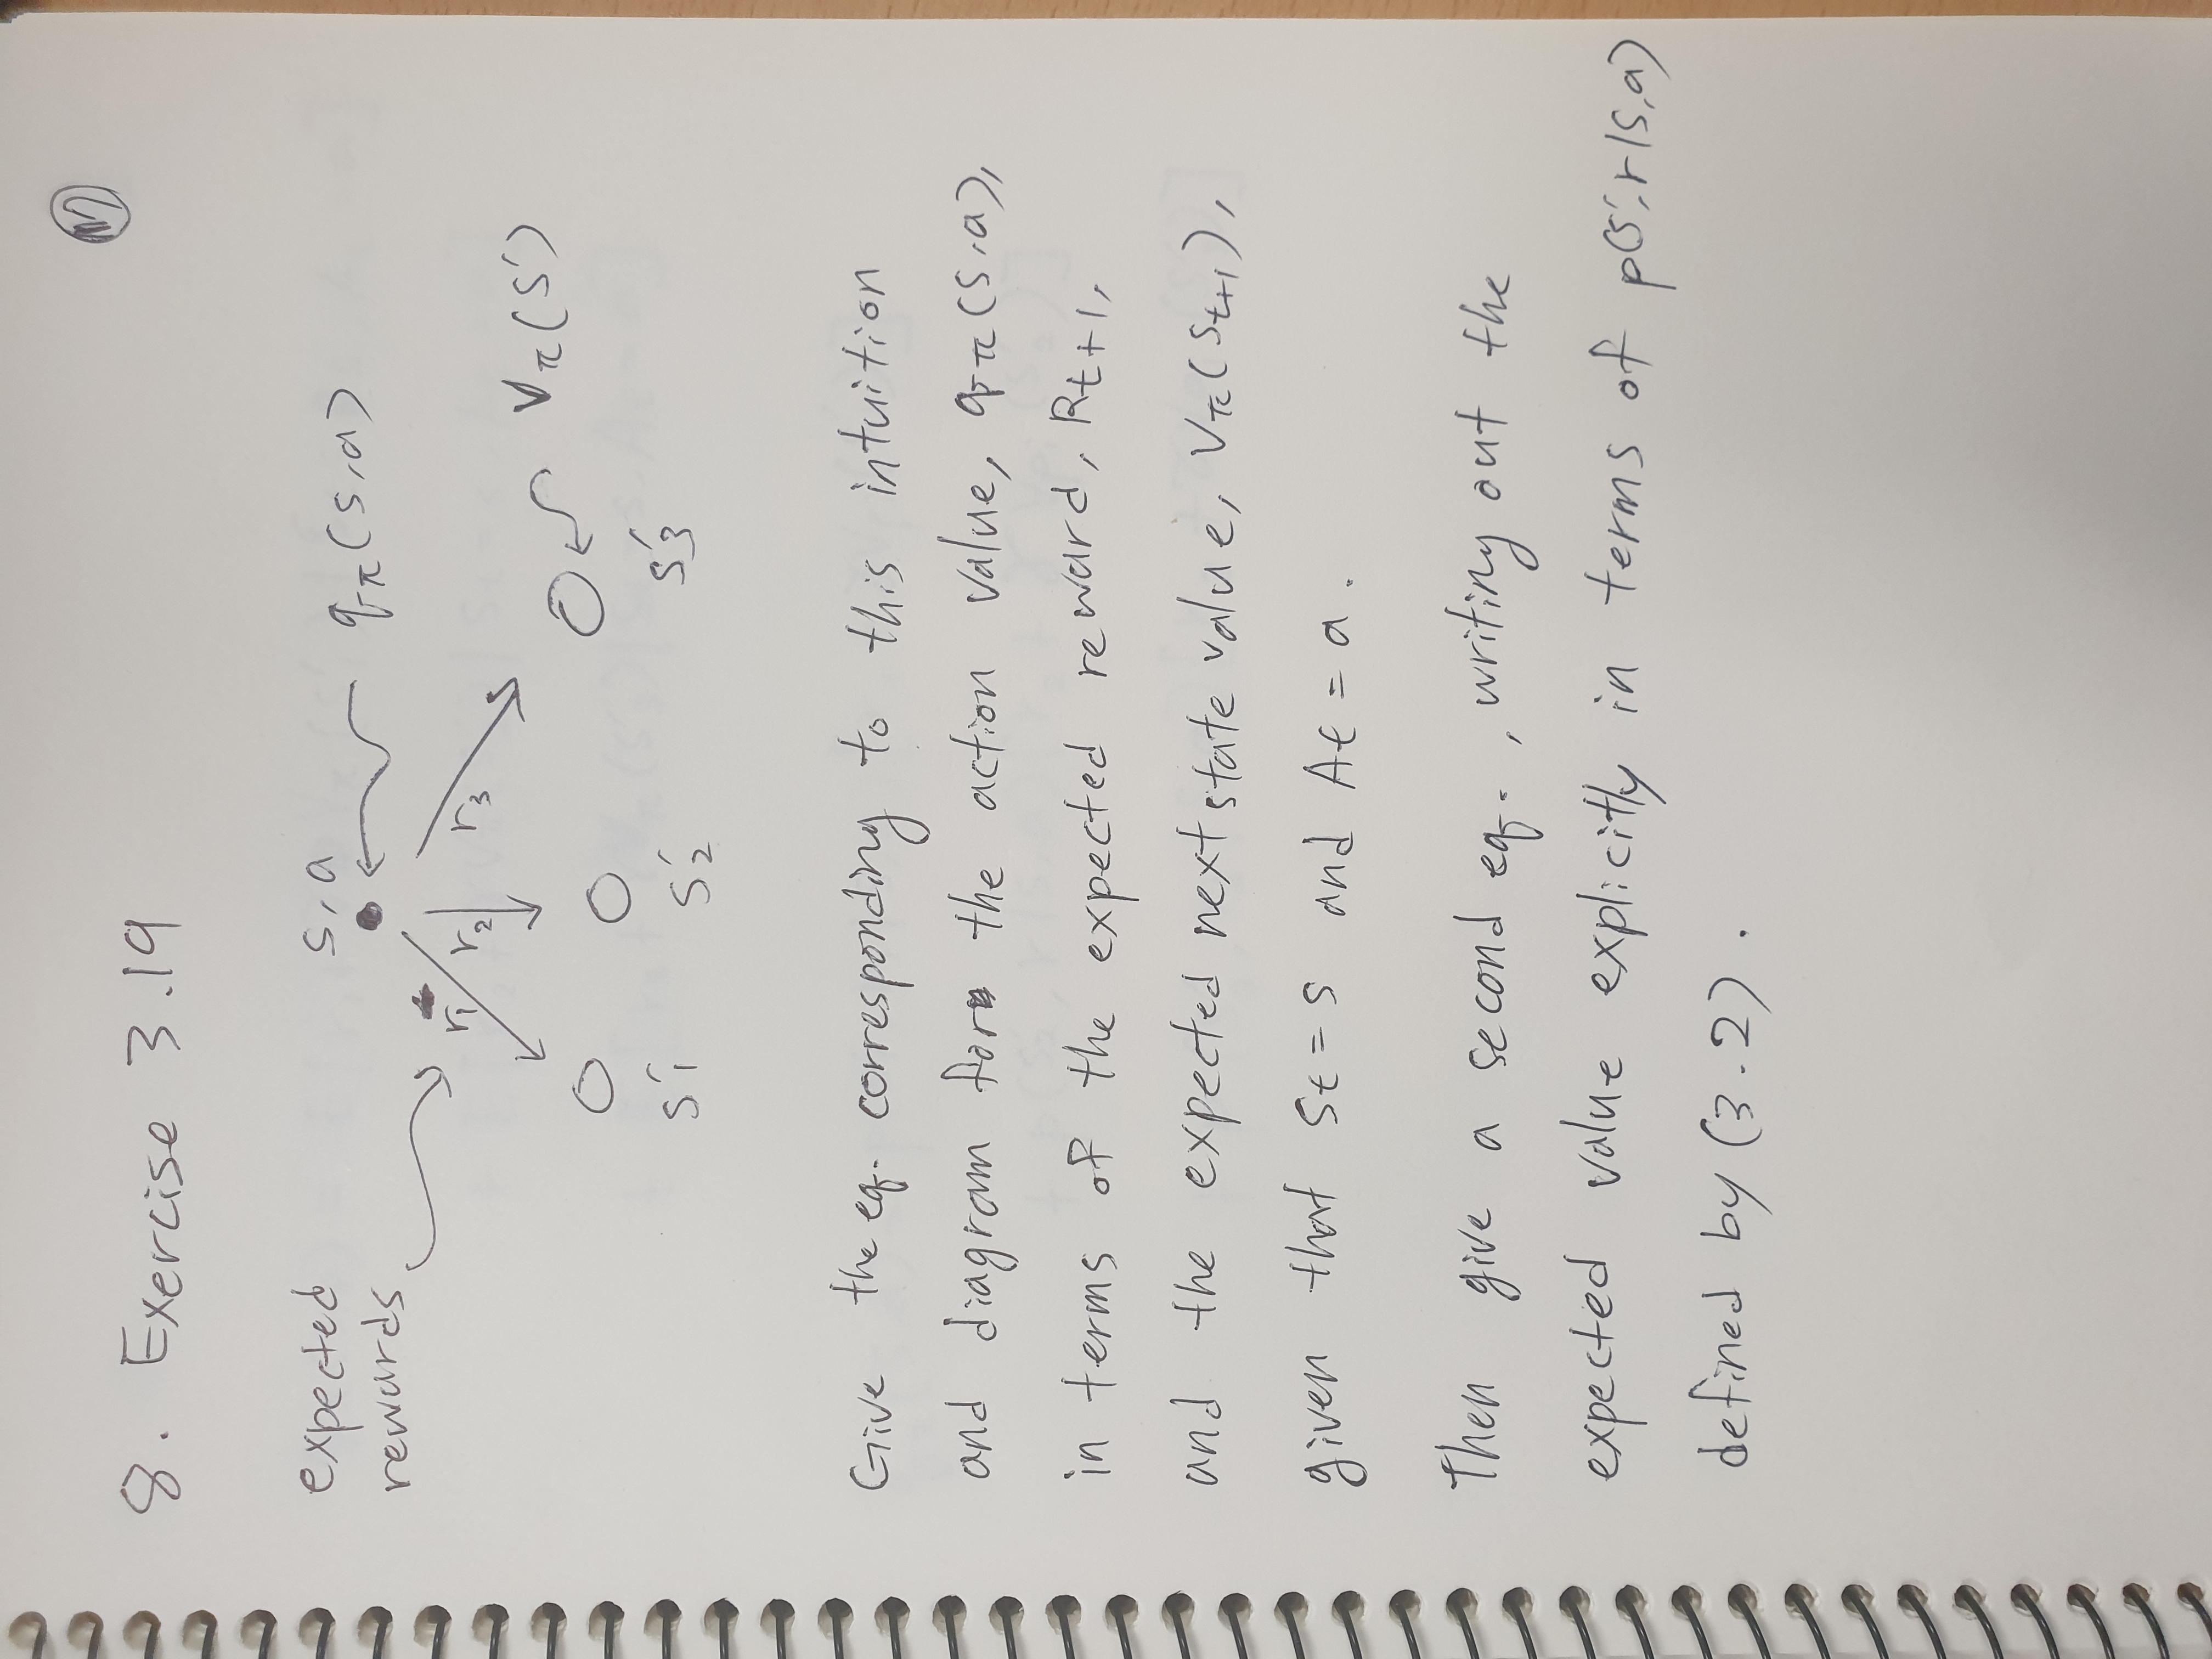 8. Exercise 3.19
expected
rewards
s,a
qπ(s,a)
r1
r2
r3
Vπ(s')
s'1
s'2
s'3
Give the eq. corresponding to this intuition
and diagram for the action value, qπ(s,a),
in terms of the expected reward, Rt+1,
and the expected next state value, Vπ(St+1),
given that St = s and At = a.
Then give a second eq., writing out the
expected value explicitly in terms of p(s',r|s,a)
defined by (3.2).